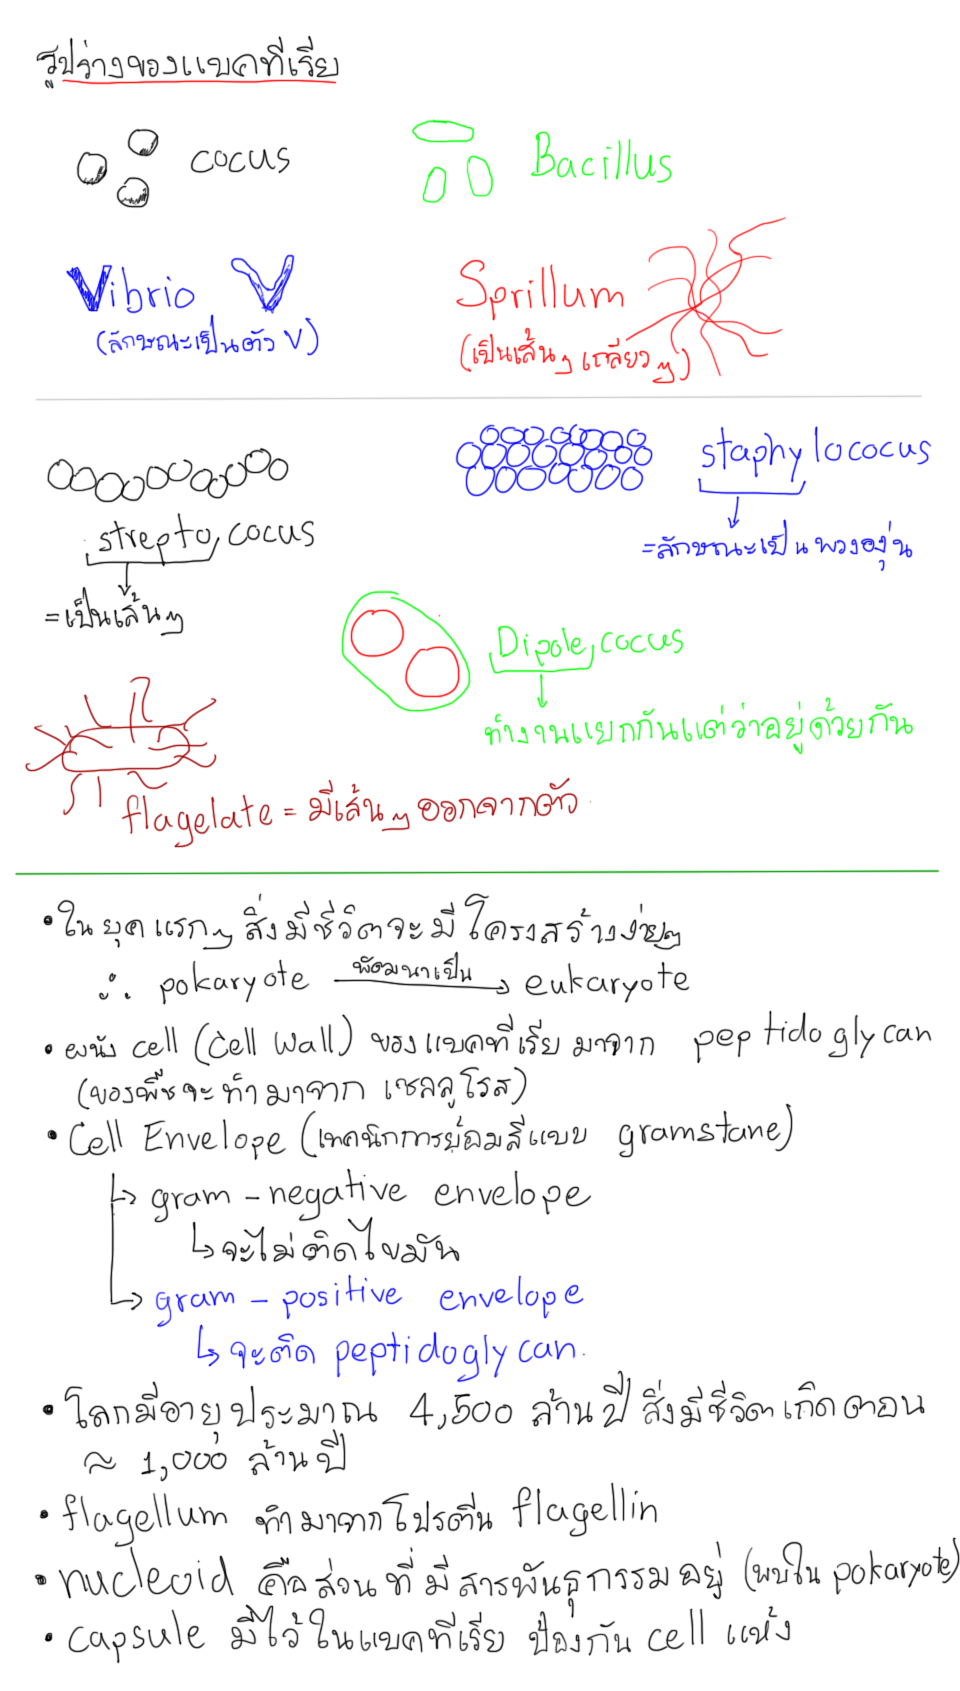 รูปร่างของแบคทีเรีย
cocus
Bacillus
Vibrio
(ลักษณะเป็นตัว V)
Sprillum
(เป็นเส้นๆ เกลียวๆ)
streptococus
=เป็นเส้นๆ
staphylococus
=ลักษณะเป็นพวงองุ่น
Dipolecocus
ทำงานแยกกันแต่ว่าอยู่ด้วยกัน
flagelate = มีเส้นๆ ออกจากตัว
• ในยุคแรกๆ สิ่งมีชีวิตจะมีโครงสร้างง่ายๆ
∴ pokaryote พัฒนาเป็น → eukaryote
• ผนัง cell (Cell Wall) ของแบคทีเรีย มาจาก peptidoglycan
(ของพืชจะทำมาจาก เซลลูโรส)
• Cell Envelope (เทคนิกการย้อมสีแบบ gramstane)
↳ gram - negative envelope
↳ จะไม่ติดไขมัน
↳ gram - positive envelope
↳ จะติด peptidoglycan.
• โลกมีอายุประมาณ 4,500 ล้านปี สิ่งมีชีวิตเกิดตอน
≈ 1,000 ล้านปี
• flagellum ทำมาจากโปรตีน flagellin
• nucleoid คือส่วนที่มีสารพันธุกรรมอยู่ (พบใน pokaryote)
• capsule มีไว้ในแบคทีเรีย ป้องกัน cell แห้ง